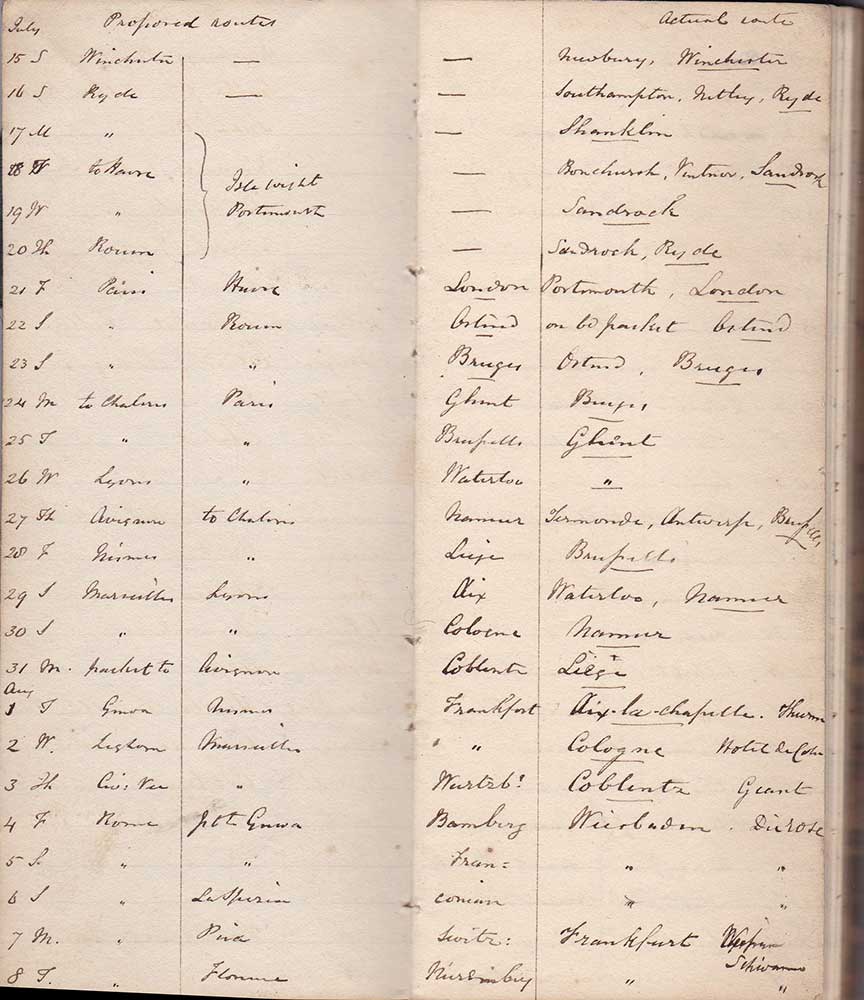 July Proposed routes Actual route
15 S Winchester — — Newbury, Winchester
16 S Ryde — — Southampton, Netley, Ryde
17 M " — Shanklin
18 T to Havre Isle Wight — Bonchurch, Ventnor, Sandrock
19 W " Portsmouth — Sandrock
20 Th Rouen — Sandrock, Ryde
21 F Paris Havre London Portsmouth, London
22 S " Rouen Ostend on bd packet Ostend
23 S " " Bruges Ostend, Bruges
24 M to Chalons Paris Ghent Bruges
25 T " " Brussells Ghent
26 W Lyons " Waterloo "
27 Th Avignon to Chalons Namur Termonde, Antwerp, Brussells
28 F Nismes " Liege Brussells
29 S Marseilles Lyons Aix Waterloo, Namur
30 S " " Cologne Namur
31 M. packet to Avignon Coblentz Liége
Aug
1 T Genoa Nismes Frankfort Aix-la-chapelle.
2 W. Leghorn Marseilles " Cologne Hotel de Coln
3 Th Civ: Vec " Wurtzbg. Coblentz Geant
4 F Rome pkt Genoa Bamberg Wiesbaden. Die rose
5 S. " " Fran= " "
6 S " La Spezia conian " "
7 M. " Pisa Switz: Frankfurt
Schwann
8 T. " Florence Nuremberg " "